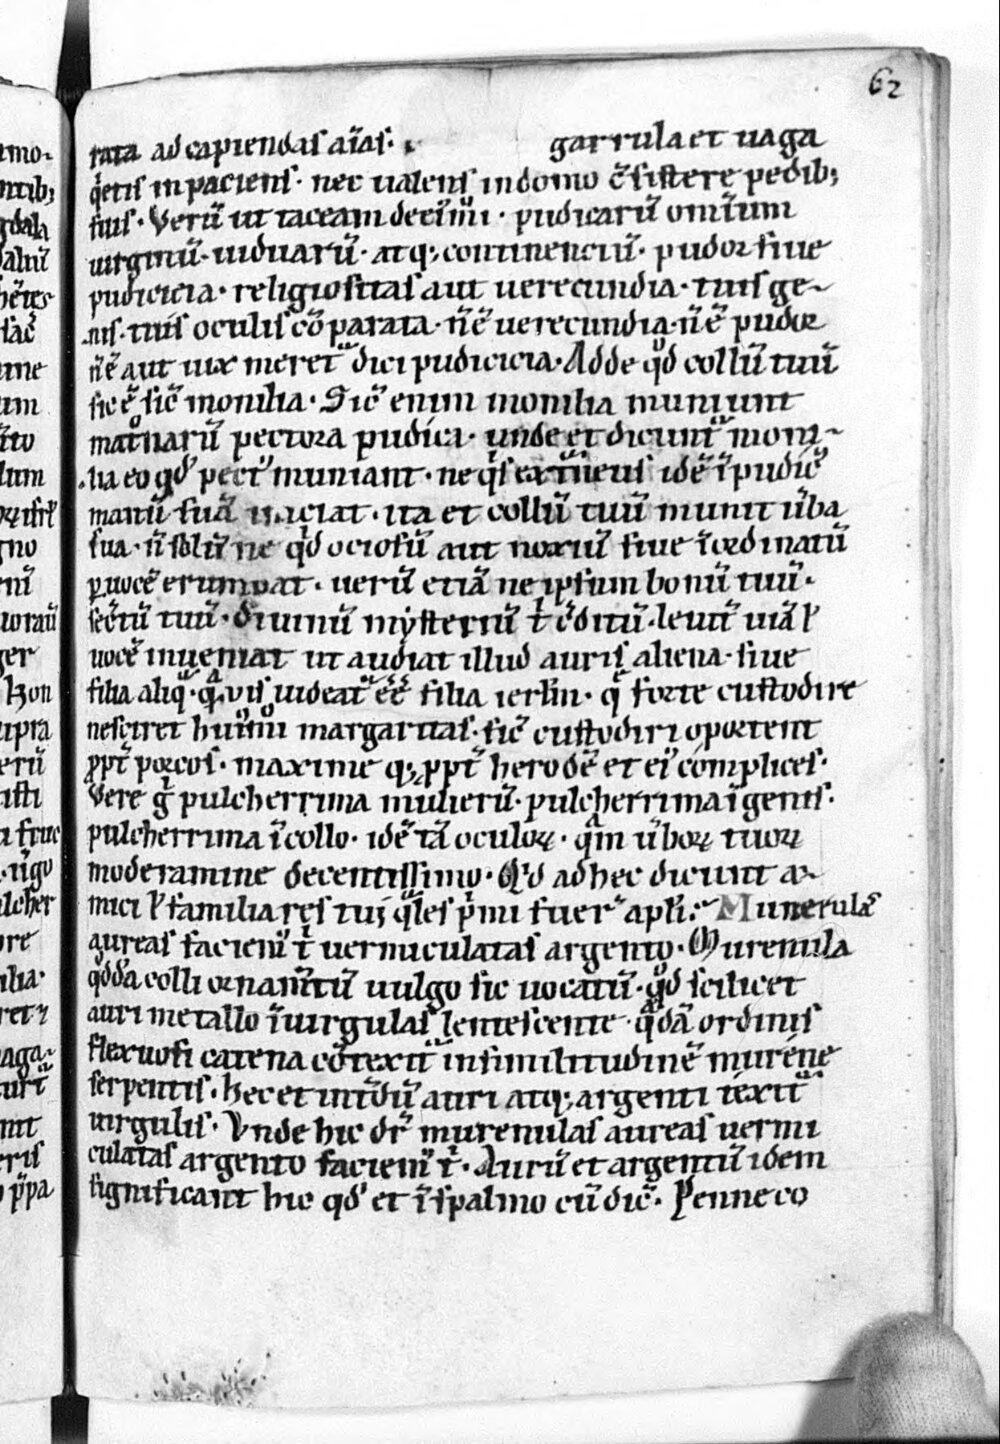 62
rata ad capiendas aīas· garrula et uaga
q̄etis inpaciens· nec ualens in domo c̄sistere pedib;
suis· Verū ut taceam de eīmi· pudicarū omīum
uirginū· uiduarū· atq; continenciū· pudor siue
pudicicia· religiositas aut uerecundia· tuis ge-
nis· tuis oculis cōparata· n̄ ē uerecundia· n̄ ē pudor
n̄ ē aut uix meret᷑ dici pudicicia· Adde qd̄ collū tuū
sic ē sic̄ monilia· Sic̄ enim monilia muniunt
mat̄narū pectora pudica· unde et dicunt᷑ moni-
lia eo qd̄ pect᷒ muniant· ne q̄s extᷓneus idē īpudic̄
manū suā iniciat· ita et collū tuū munit ūba
sua· n̄ solū ne qd̄ ociosū aut noxiū siue īordinatū
p̱ uocē erumpat· uerū etiā ne ipsum bonū tuū·
sec̄tū tuū· diuinū mẏsteriū t̄ c̄ditū· leuit᷑ uiā ł
uocē inueniat ut audiat illud auris aliena· siue
filia aliq̄· q̄uis uideat᷑ ēē filia ierłm· q̄ forte custodire
nesciret hui᷒mōi margaritas· sic̄ custodiri oportent
ꝓpt̄ porcos· maxime q; ꝓpt̄ herodē et ei᷒ cómplices·
Vere g̊ pulcherrima mulierū· pulcherrima ī genis·
pulcherrima ī collo· idē tā oculoꝝ· q̄m ūboꝝ tuoꝝ
moderamine decentissimo· Qd̄ ad hec dicunt a-
mici ł familiares tui q̄les p̄mi fuer̄ apłi· Munerulas
aureas faciem᷒ t̄ uermiculatas argento· Murenula
qd̄dā colli ornam̄tū uulgo sic uocatū· qd̄ scilicet
auri metallo ī uirgulas lentescente q̄dā ordinis
flexuosi catena cōtexit᷑ in similitudinē murene
serpentis· hec et int̄dū auri atq; argenti texit᷑
uirgulis· Vnde hic dr̄ murenulas aureas uermi
culatas argento faciem᷒ t̄· Aurū et argentū idem
significant hic qd̄ et ī psalmo cū dic̄· Penne co